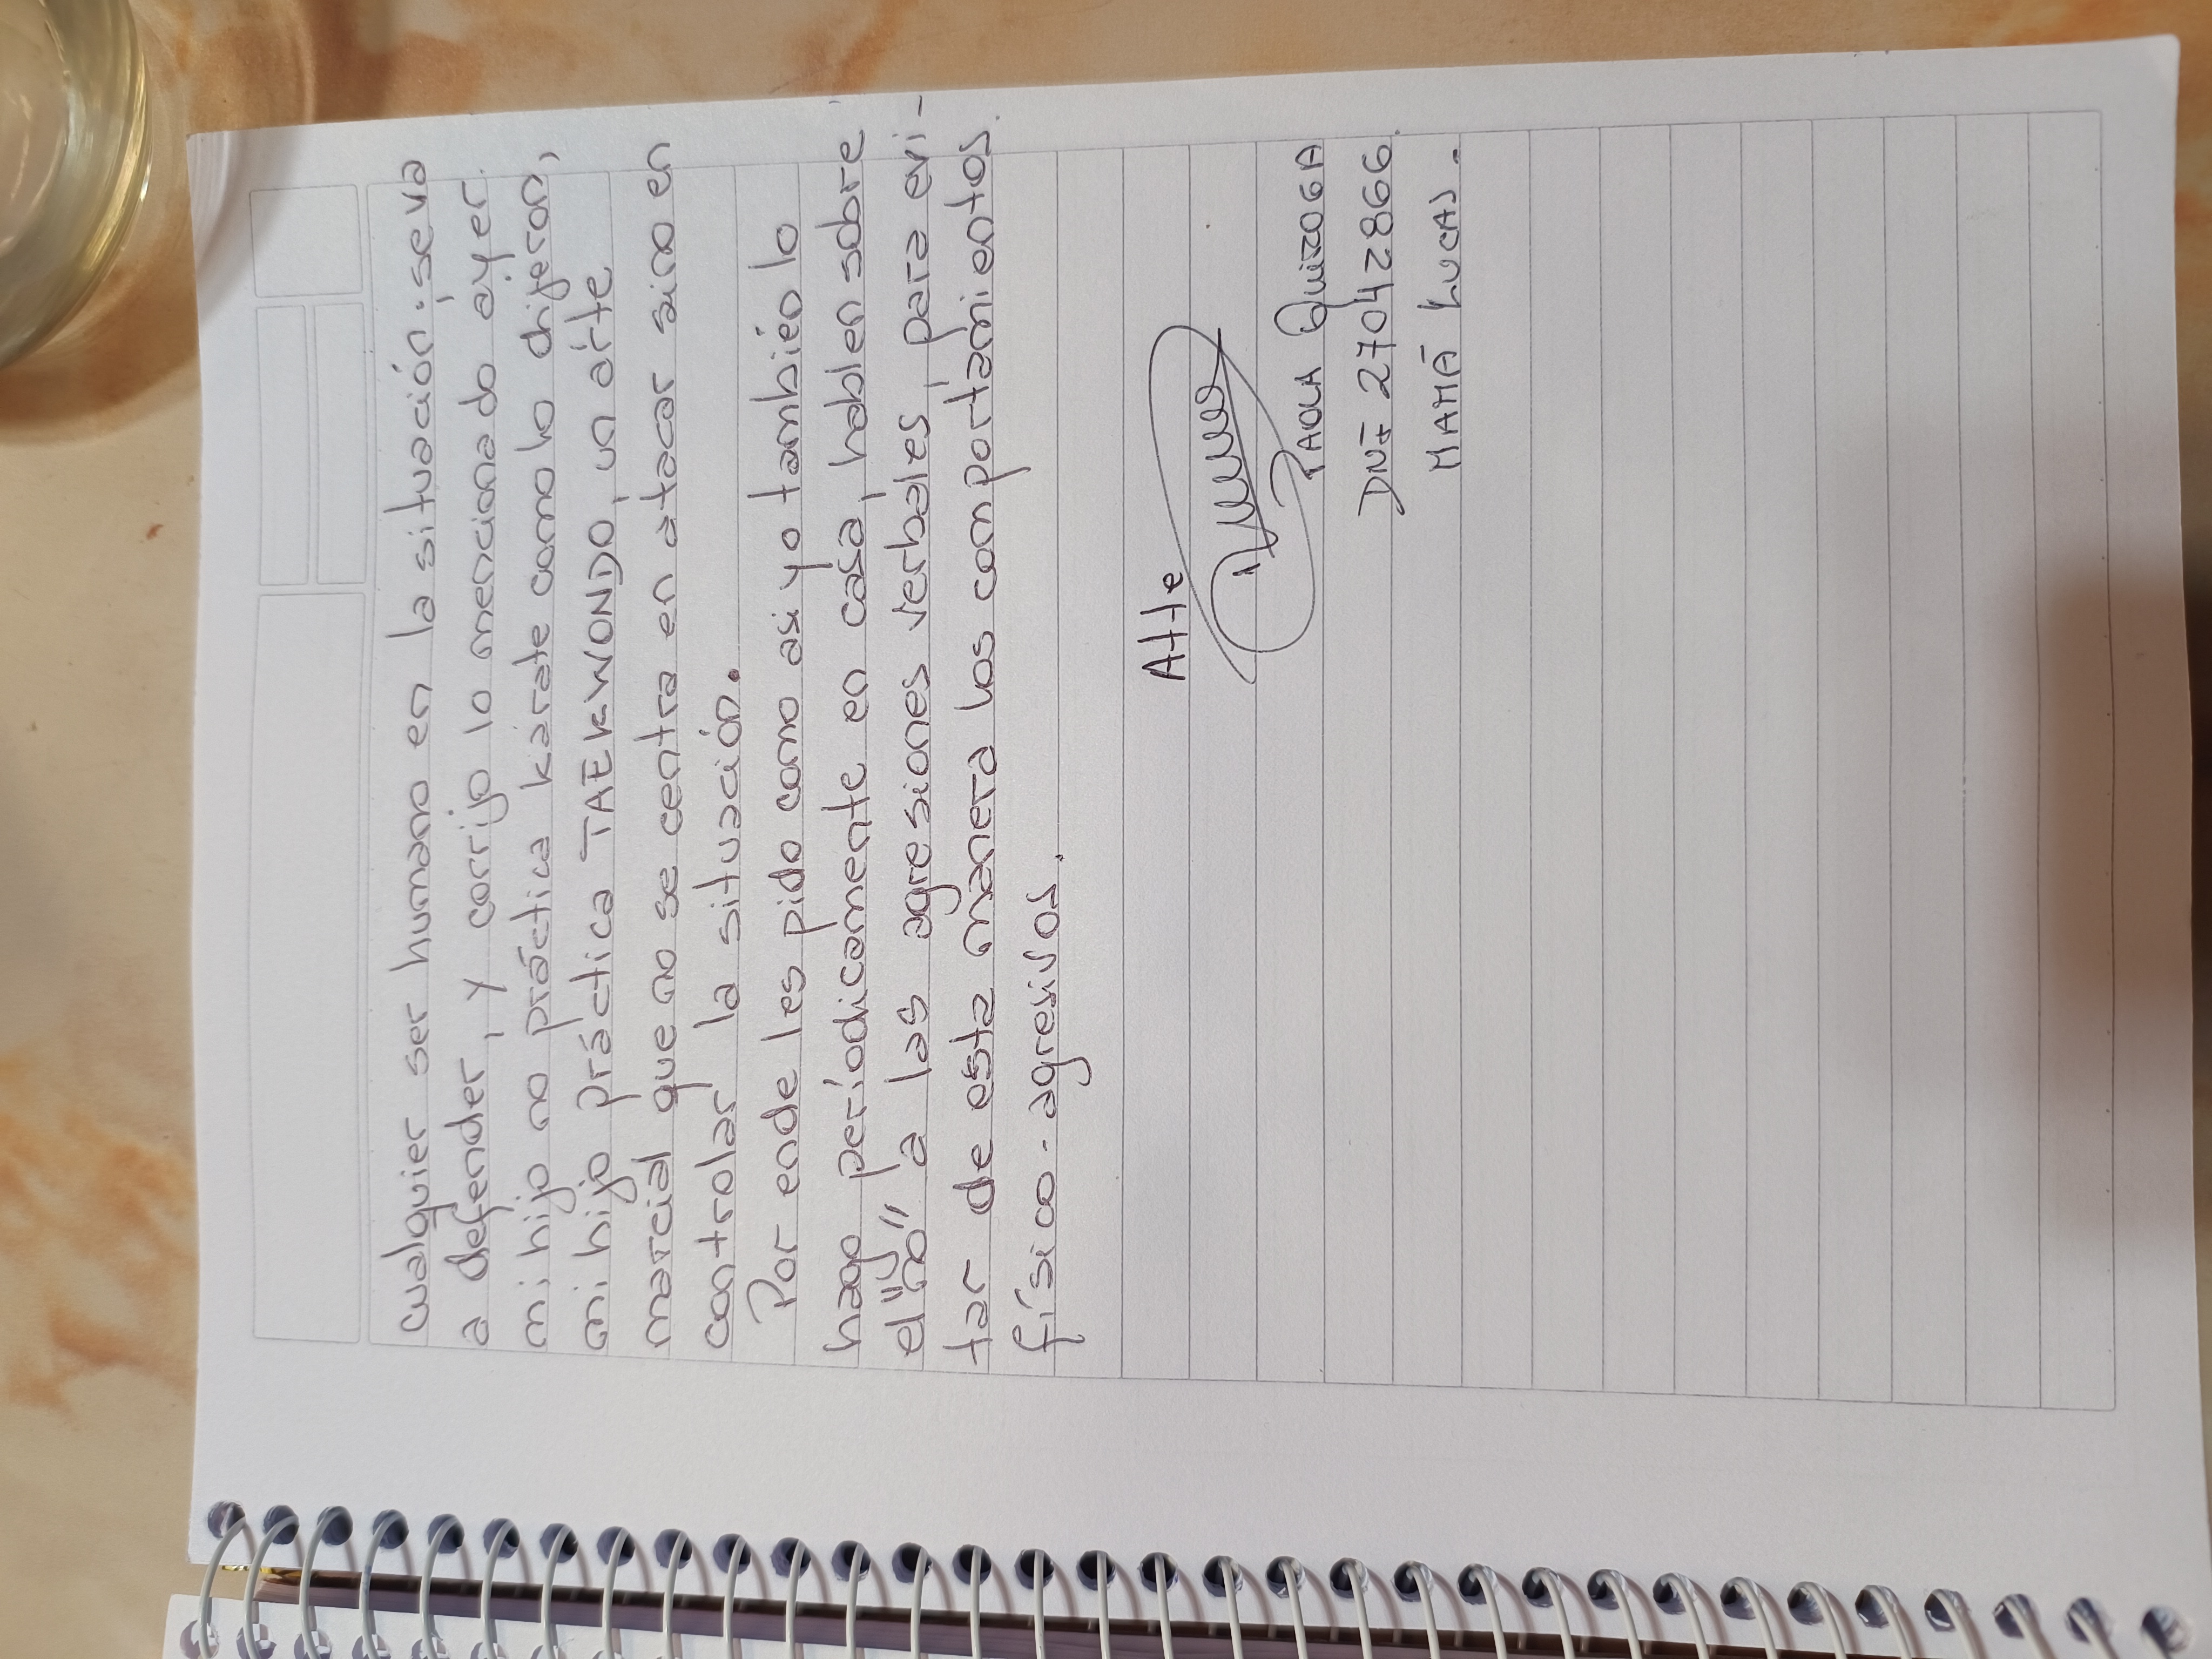 cualquier ser humano en la situación, se va
a defender, y corrijo lo mencionado ayer.
mi hijo no práctica kárate como lo dijeron,
mi hijo práctica TAEKWONDO, un arte
marcial que no se centra en atacar sino en
controlar la situación.
Por ende les pido como asi yo también lo
hago períodicamente en casa, hablen sobre
el "no" a las agresiones verbales, para evi-
tar de esta manera los comportamientos
físico-agresivos.
Atte
PAOLA QUIROGA
DNI 27042866.
MAMÁ LUCAS.